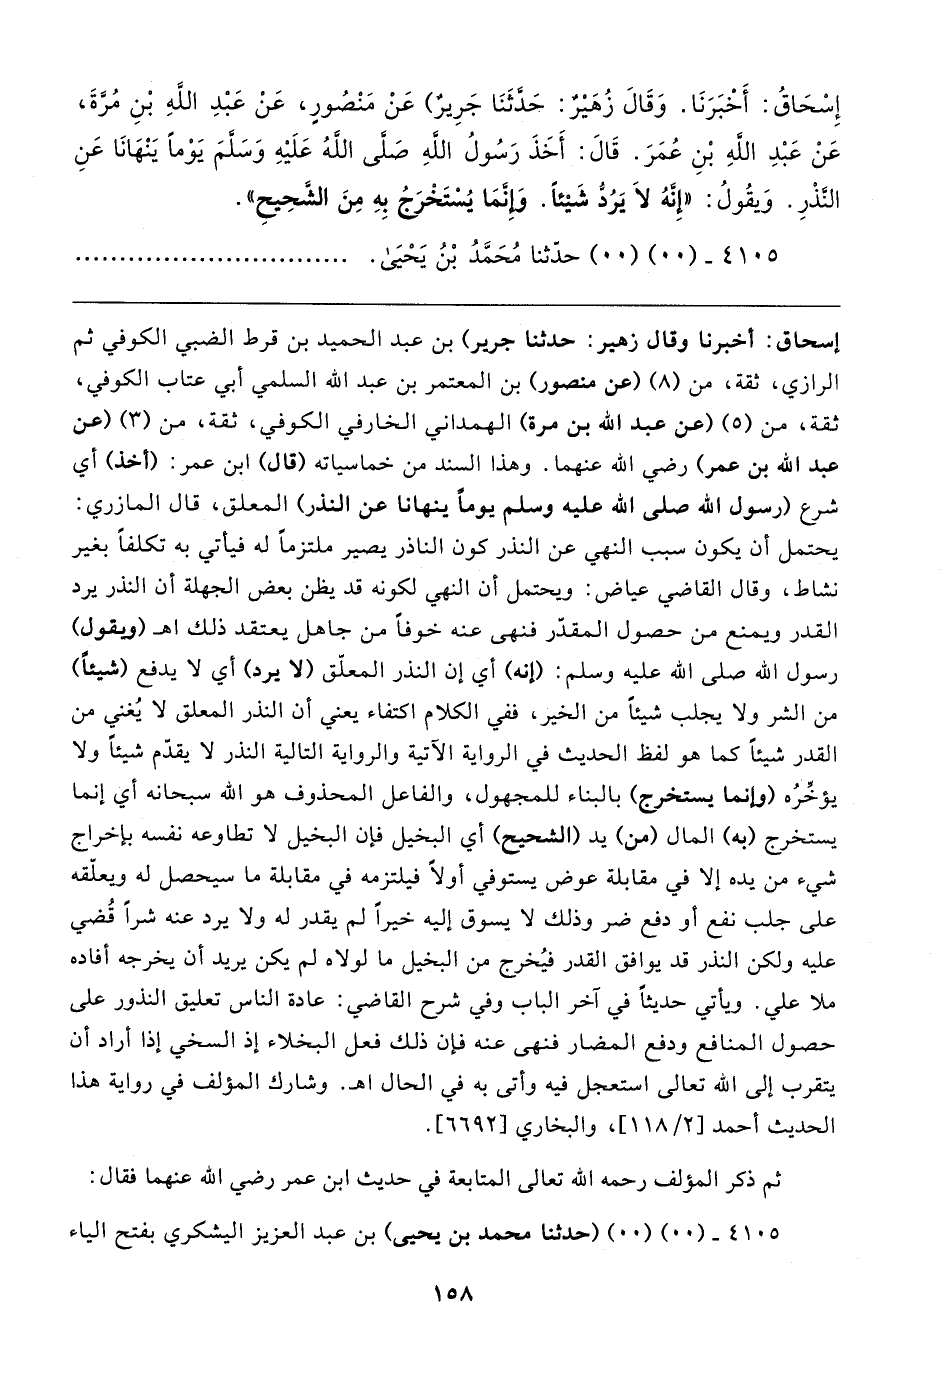 إِسْحَاقُ: أَخْبَرَنَا. وَقَالَ زُهَيْرٌ: حَدَّثَنَا جَرِيرٌ) عَنْ مَنْصُورٍ، عَنْ عَبْدِ اللَّهِ بْنِ مُرَّةَ،
عَنْ عَبْدِ اللَّهِ بْنِ عُمَرَ. قَالَ: أَخَذَ رَسُولُ اللَّهِ صَلَّى اللَّهُ عَلَيْهِ وَسَلَّمَ يَوْماً يَنْهَانَا عَنِ
النَّذْرِ. وَيَقُولُ: «إِنَّهُ لاَ يَرُدُّ شَيْئاً. وَإِنَّمَا يُسْتَخْرَجُ بِهِ مِنَ الشَّحِيحِ».
٤١٠٥ ـ (٠٠) (٠٠) حدّثنا مُحَمَّدُ بْنُ يَحْيَىٰ. ...............................
إسحاق: أخبرنا وقال زهير: حدثنا جرير) بن عبد الحميد بن قرط الضبي الكوفي ثم
الرازي، ثقة، من (٨) (عن منصور) بن المعتمر بن عبد الله السلمي أبي عتاب الكوفي،
ثقة، من (٥) (عن عبد الله بن مرة) الهمداني الخارفي الكوفي، ثقة، من (٣) (عن
عبد الله بن عمر) رضي الله عنهما. وهذا السند من خماسياته (قال) ابن عمر: (أخذ) أي
شرع (رسول الله صلى الله عليه وسلم يوماً ينهانا عن النذر) المعلق، قال المازري:
يحتمل أن يكون سبب النهي عن النذر كون الناذر يصير ملتزماً له فيأتي به تكلفاً بغير
نشاط، وقال القاضي عياض: ويحتمل أن النهي لكونه قد يظن بعض الجهلة أن النذر يرد
القدر ويمنع من حصول المقدّر فنهى عنه خوفاً من جاهل يعتقد ذلك اهـ (ويقول)
رسول الله صلى الله عليه وسلم: (إنه) أي إن النذر المعلّق (لا يرد) أي لا يدفع (شيئاً)
من الشر ولا يجلب شيئاً من الخير، ففي الكلام اكتفاء يعني أن النذر المعلق لا يُغني من
القدر شيئاً كما هو لفظ الحديث في الرواية الآتية والرواية التالية النذر لا يقدّم شيئاً ولا
يؤخّرُه (وإنما يستخرج) بالبناء للمجهول، والفاعل المحذوف هو الله سبحانه أي إنما
يستخرج (به) المال (من) يد (الشحيح) أي البخيل فإن البخيل لا تطاوعه نفسه بإخراج
شيء من يده إلا في مقابلة عوض يستوفي أولاً فيلتزمه في مقابلة ما سيحصل له ويعلّقه
على جلب نفع أو دفع ضر وذلك لا يسوق إليه خيراً لم يقدر له ولا يرد عنه شراً قُضي
عليه ولكن النذر قد يوافق القدر فيُخرج من البخيل ما لولاه لم يكن يريد أن يخرجه أفاده
ملا علي. ويأتي حديثاً في آخر الباب وفي شرح القاضي: عادة الناس تعليق النذور على
حصول المنافع ودفع المضار فنهى عنه فإن ذلك فعل البخلاء إذ السخي إذا أراد أن
يتقرب إلى الله تعالى استعجل فيه وأتى به في الحال اهـ. وشارك المؤلف في رواية هذا
الحديث أحمد [٢/ ١١٨]، والبخاري [٦٦٩٢].
ثم ذكر المؤلف رحمه الله تعالى المتابعة في حديث ابن عمر رضي الله عنهما فقال:
٤١٠٥ ـ (٠٠) (٠٠) (حدثنا محمد بن يحيى) بن عبد العزيز اليشكري بفتح الياء
١٥٨